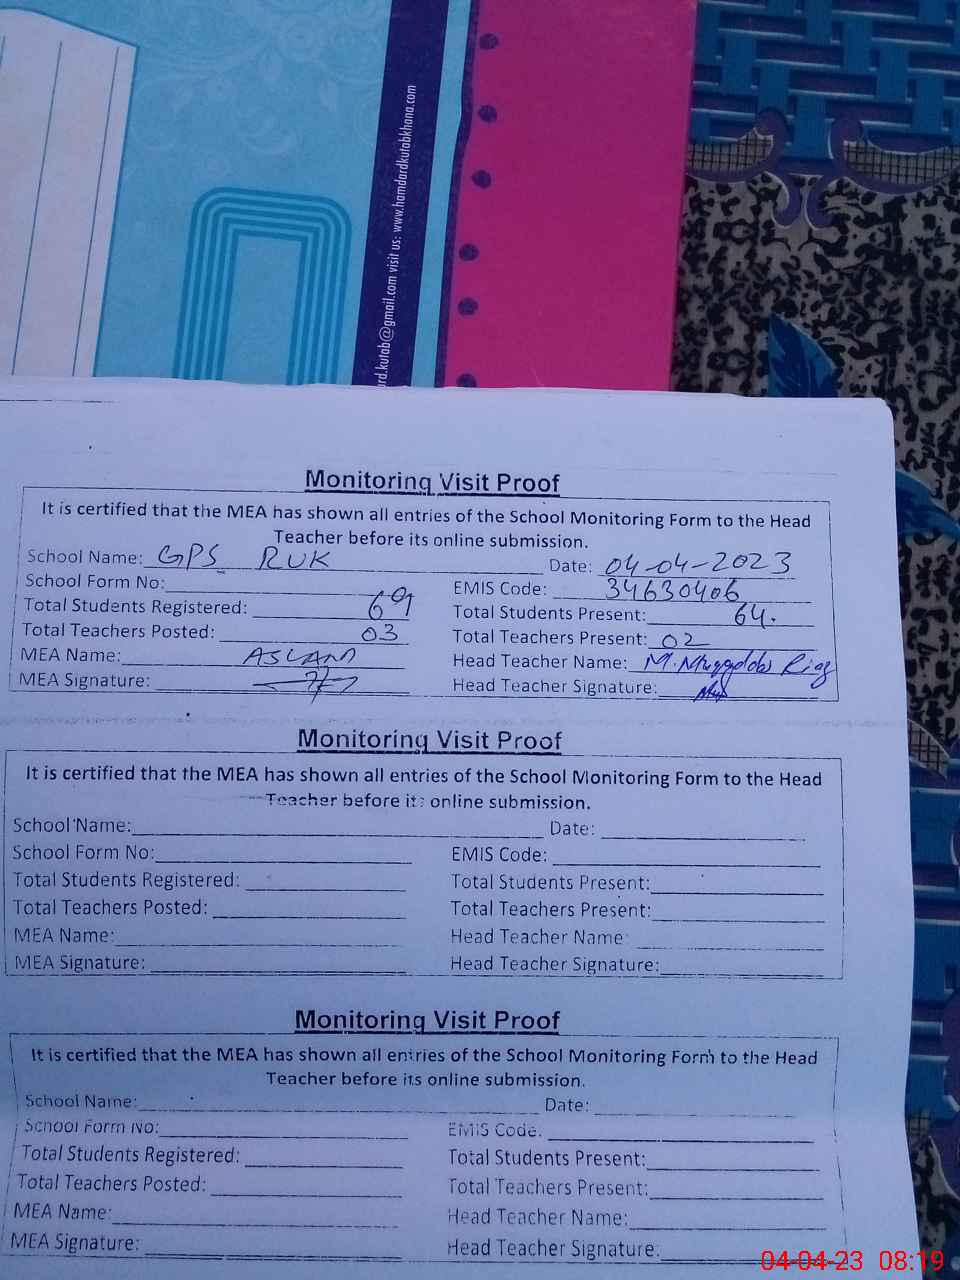 rd.kutab@gmail.com visit us: www.hamdardkutabkhana.com
Monitoring Visit Proof
It is certified that the MEA has shown all entries of the School Monitoring Form to the Head
Teacher before its online submission.
School Name: GPS RUK Date: 04-04-2023
School Form No: EMIS Code: 34630406
Total Students Registered: 69 Total Students Present: 64.
Total Teachers Posted: 03 Total Teachers Present: 02
MEA Name: ASLAM Head Teacher Name: M.
MEA Signature: Head Teacher Signature:
Monitoring Visit Proof
It is certified that the MEA has shown all entries of the School Monitoring Form to the Head
Teacher before its online submission.
School Name: Date:
School Form No: EMIS Code:
Total Students Registered: Total Students Present:
Total Teachers Posted: Total Teachers Present:
MEA Name: Head Teacher Name:
MEA Signature: Head Teacher Signature:
Monitoring Visit Proof
It is certified that the MEA has shown all entries of the School Monitoring Form to the Head
Teacher before its online submission.
School Name: Date:
School Form No: EMIS Code.
Total Students Registered: Total Students Present:
Total Teachers Posted: Total Teachers Present:
MEA Name: Head Teacher Name:
MEA Signature: Head Teacher Signature:
04-04-23 08:19